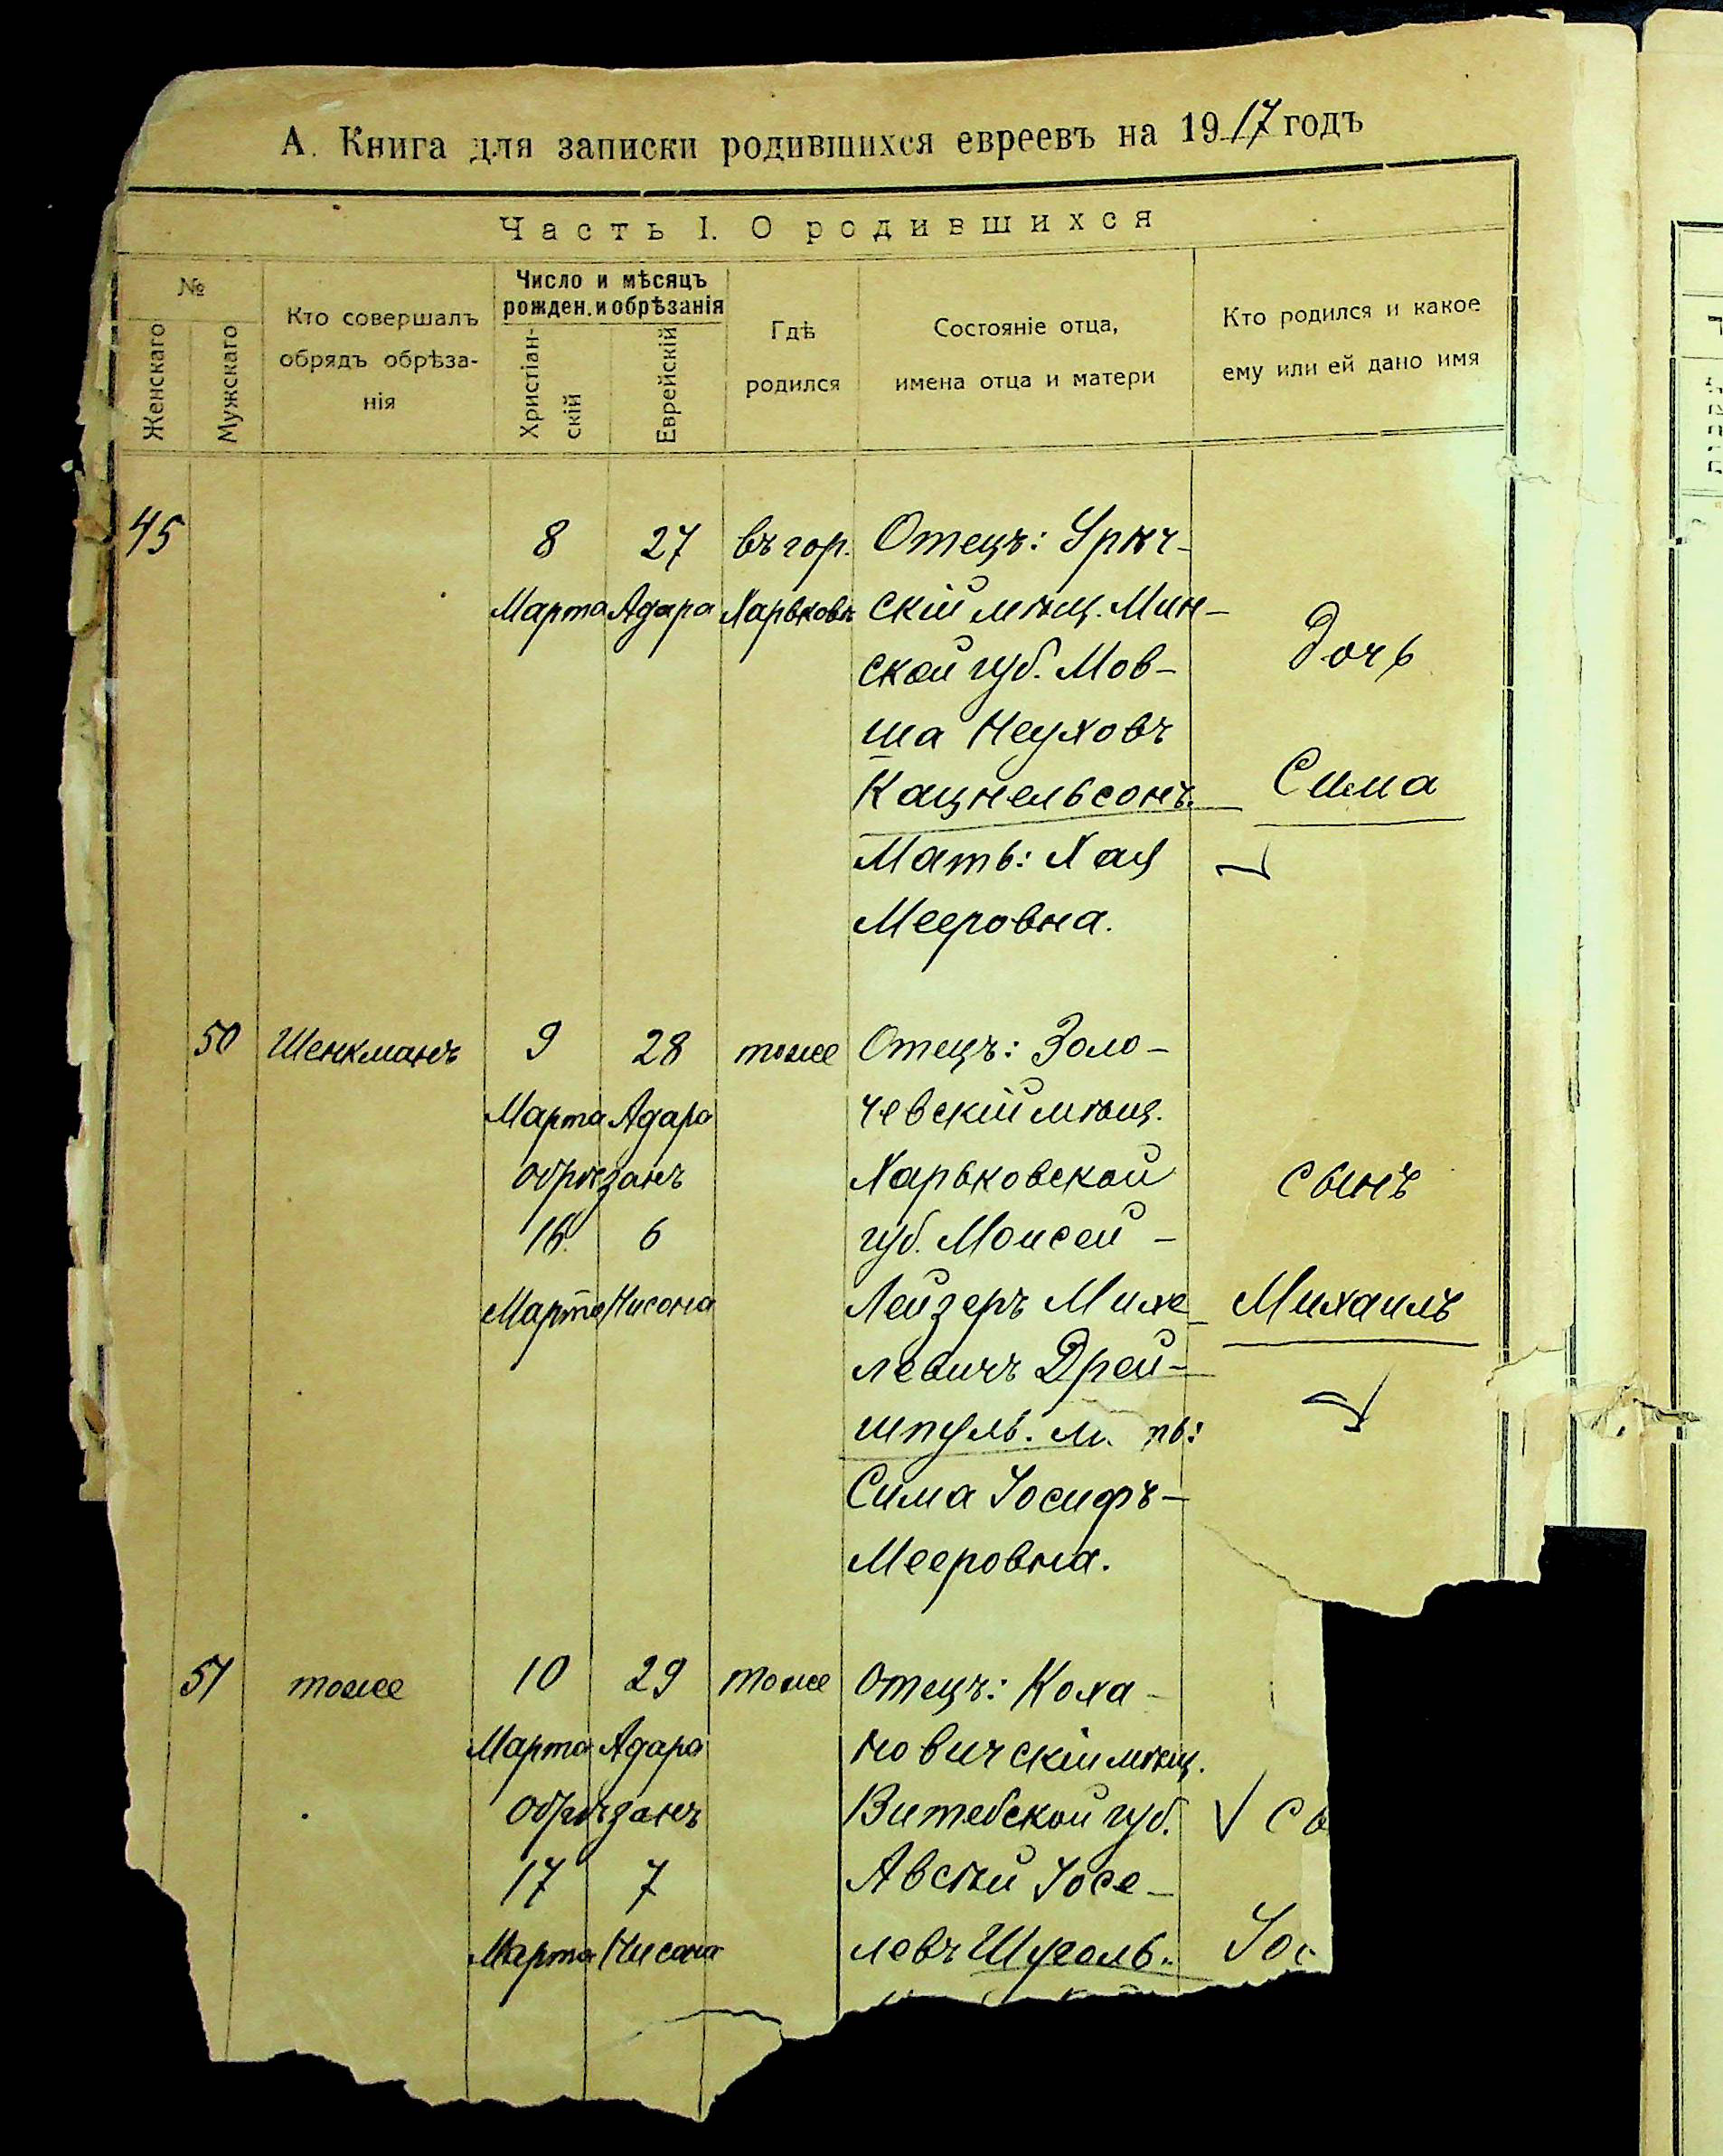 А. Книга для записки родившихся евреевъ на 1917 годъ
Часть I. О родившихся
№
Женскаго
Мужскаго
Кто совершалъ
обрядъ обрѣза-
нія
Число и мѣсяцъ
рожден. и обрѣзанія
Христіан-
скій
Еврейскій
Гдѣ
родился
Состояніе отца,
имена отца и матери
Кто родился и какое
ему или ей дано имя
45
8
Марта
27
Адара
въ гор.
Харьковѣ
Отецъ:
скій мѣщ. Мин-
ской губ. Мов-
ша
Кацнельсонъ.
Мать: Хая
Мееровна.
Дочь
Сима
50
Шенкманъ
9
Марта
28
Адара
обрѣзанъ
16
6
Марта
Нисона
тоже
Отецъ: Золо-
чевскій мѣщ.
Харьковской
губ. Моисей-
Лейзеръ Михе
левичъ Дрей-
шпуль.
Сима Іосифъ-
Мееровна.
сынъ
Михаилъ
51
тоже
10
Марта
29
Адара
обрѣзанъ
17
7
Марта
Нисона
тоже
Отецъ: Коха-
новичскій мѣщ.
Витебской губ.
Авсѣй Іосе-
левъ Щуголь.